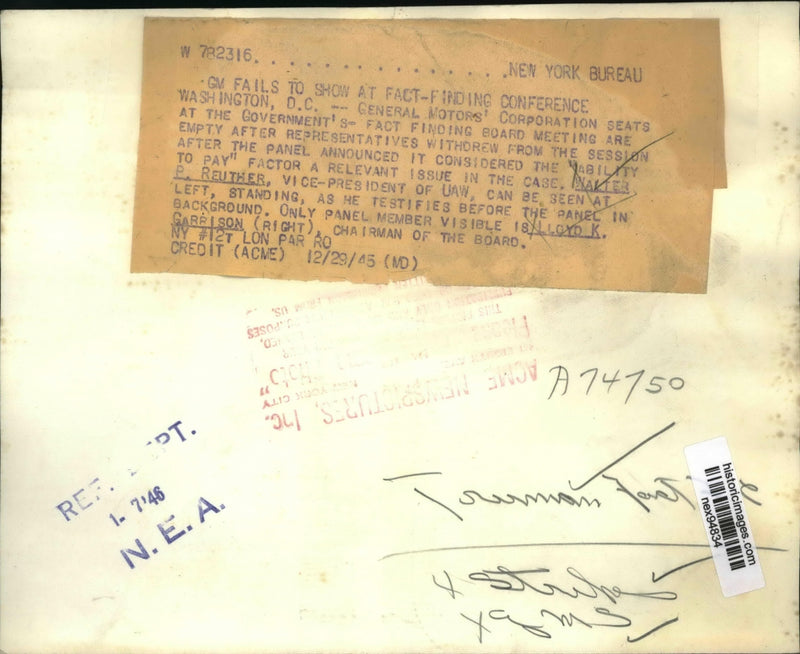 W 782316. . . . . . . . . . . . . . . . .NEW YORK BUREAU
GM FAILS TO SHOW AT FACT-FINDING CONFERENCE
WASHINGTON, D.C. -- GENERAL MOTORS' CORPORATION SEATS
AT THE GOVERNMENT'S- FACT FINDING BOARD MEETING ARE
EMPTY AFTER REPRESENTATIVES WITHDREW FROM THE SESSION
AFTER THE PANEL ANNOUNCED IT CONSIDERED THE "ABILITY
TO PAY" FACTOR A RELEVANT ISSUE IN THE CASE. WALTER
P. REUTHER, VICE-PRESIDENT OF UAW, CAN BE SEEN AT
LEFT, STANDING, AS HE TESTIFIES BEFORE THE PANEL IN
BACKGROUND. ONLY PANEL MEMBER VISIBLE IS LLOYD K.
GARRISON (RIGHT), CHAIRMAN OF THE BOARD.
NY #12T LON PAR RO
CREDIT (ACME) 12/29/45 (MD)
ACME NEWSPICTURES, INC.
NEW YORK CITY
A74750
REF. DEPT.
1- 7'46
N.E.A.
Truman Fact
4 Strikes
x GMC
historicimages.com
nex94834